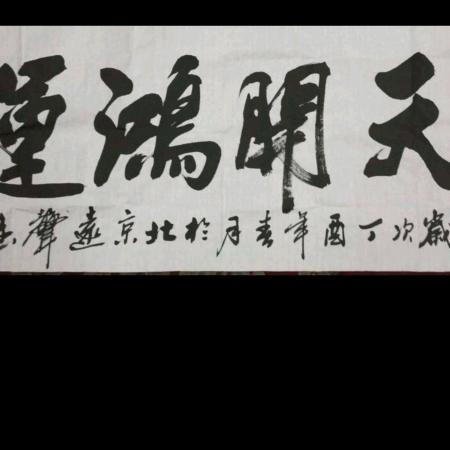 天開鴻運
歲次丁酉年春月於北京遠聲書